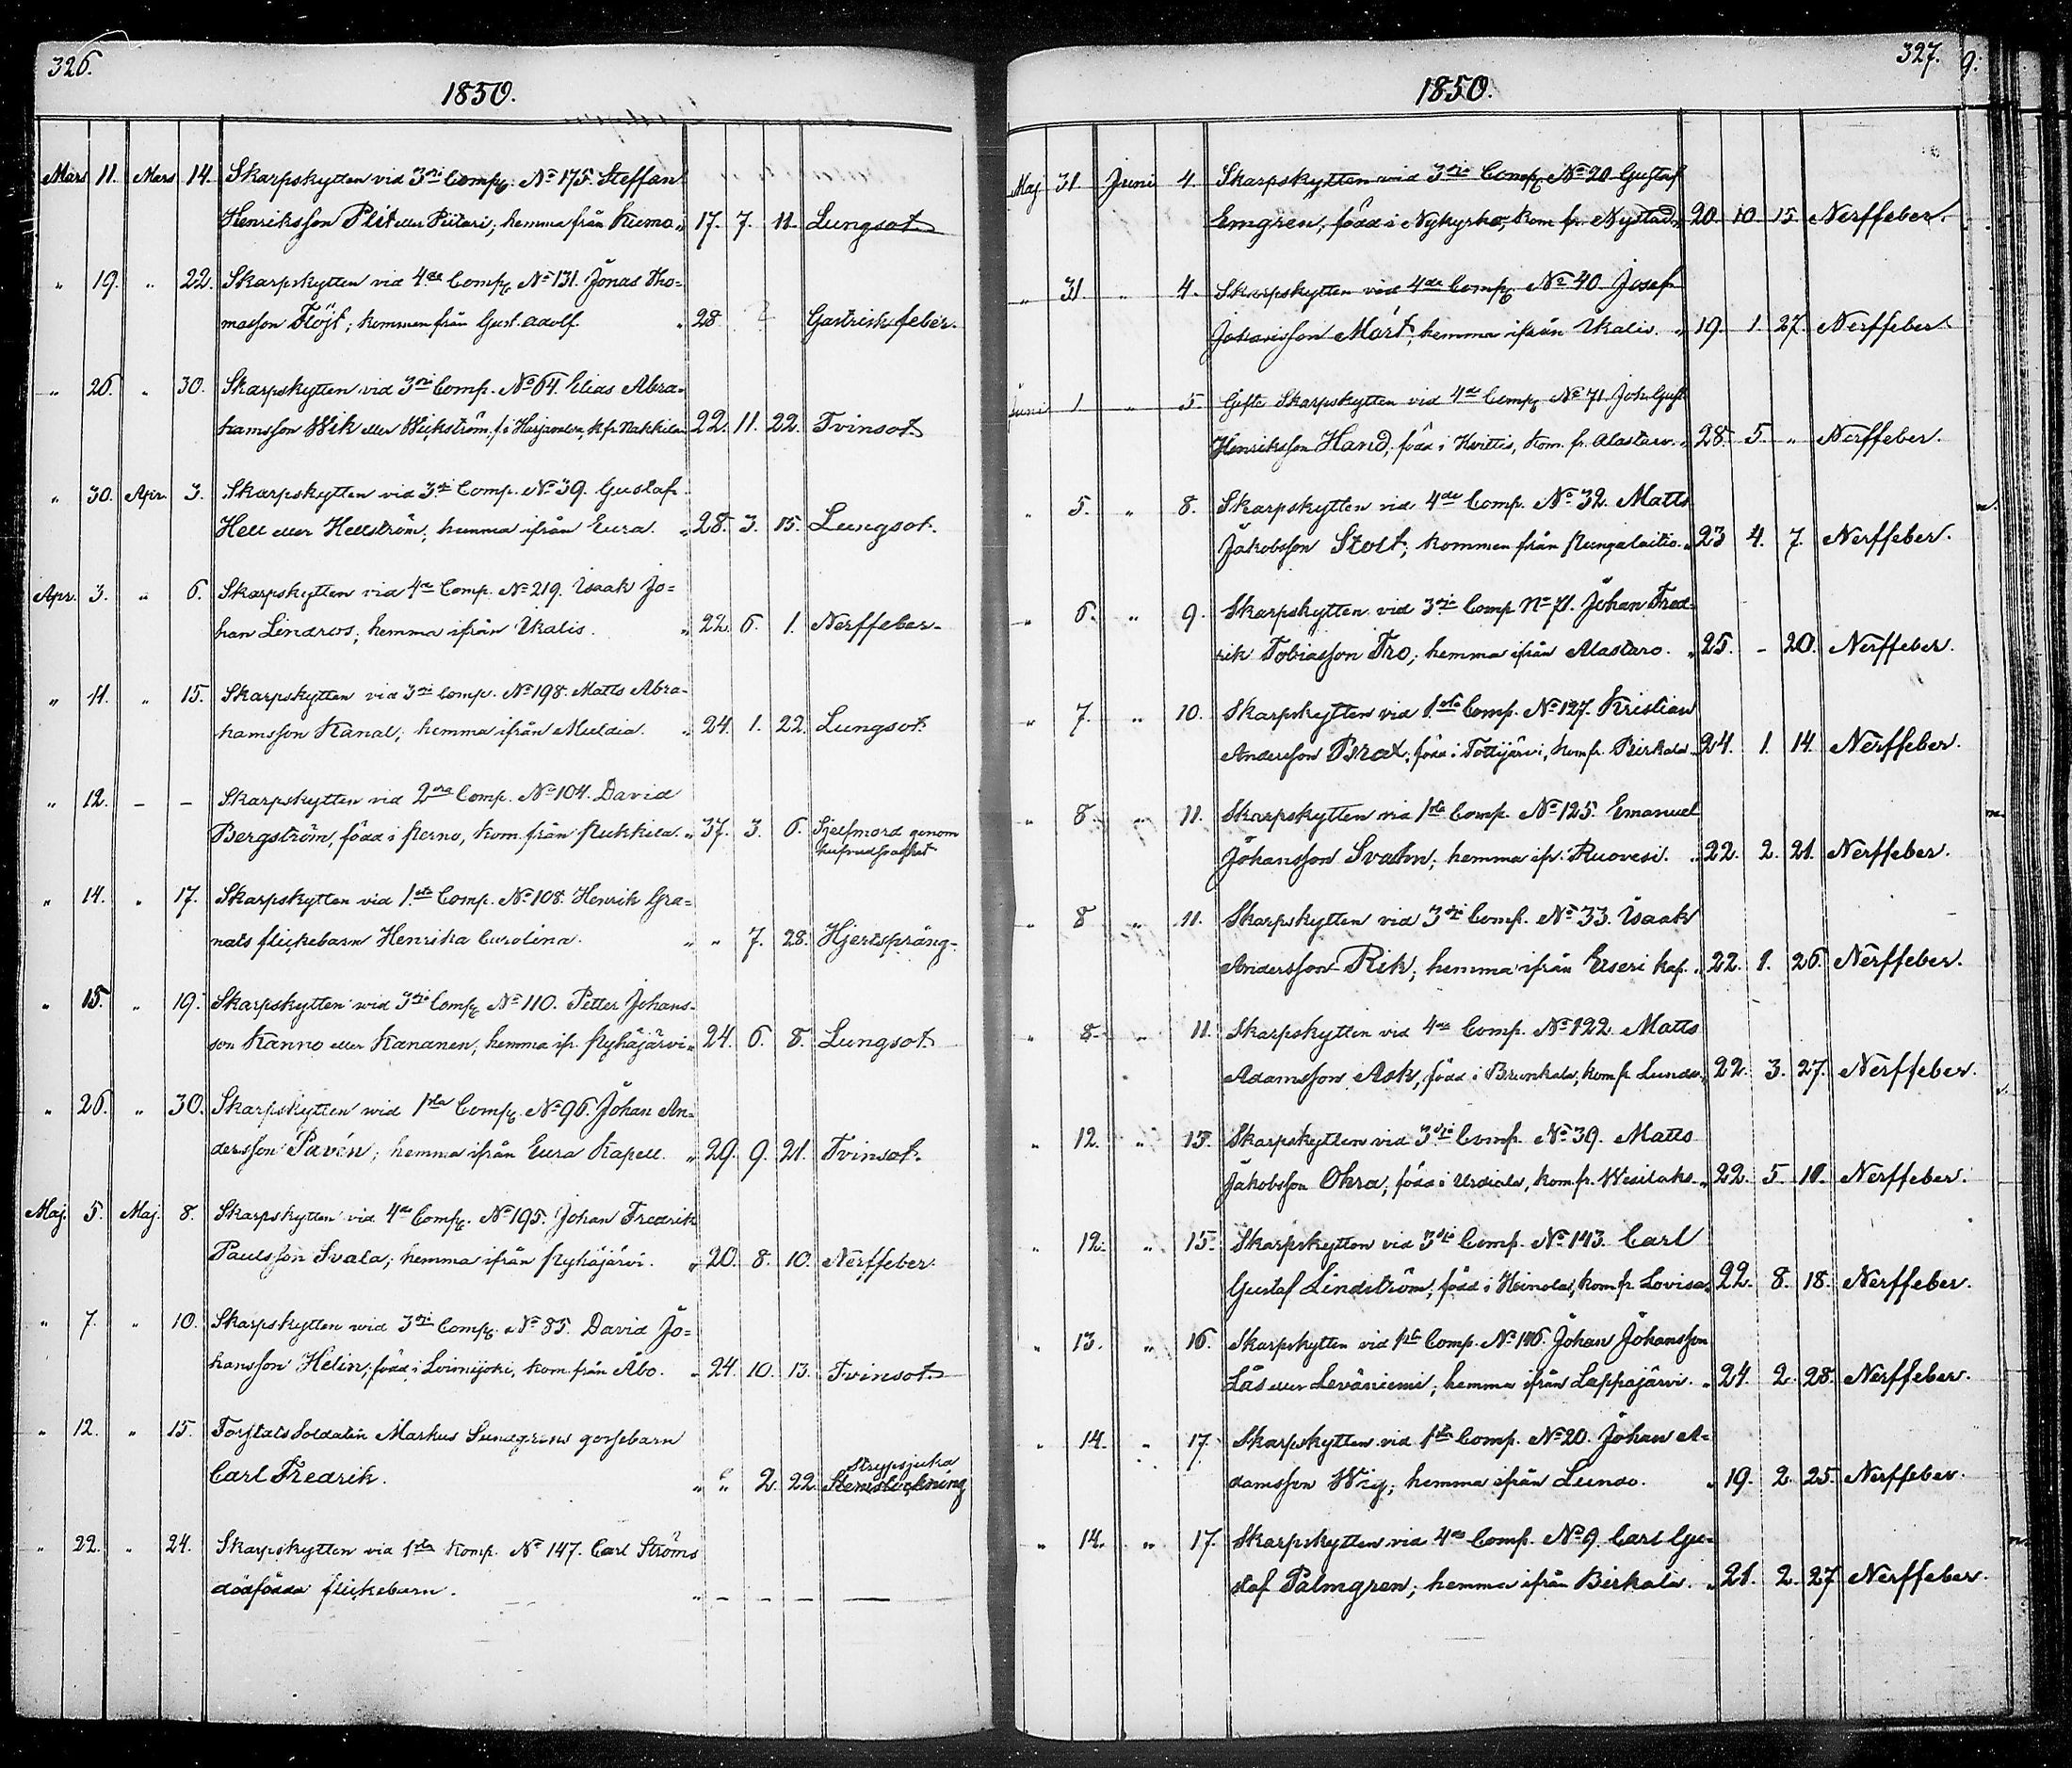 326.
1850.
Mars 11. Mars 14. Skarpskytten vid 3dje Compg. No 175. Steffan
Henriksson Plit eller Piitari, hemma från Kiumo „ 17. 7. 11. Lungsot
„ 19. „ 22. Skarpskytten vid 4de Compg. No 131. Jonas Tho=
masson Flöjt; kommen från Gust. Adolf. „ 28 ? Gastrisk feber.
„ 26. „ 30. Skarpskytten vid 3dje Comp. No 64. Elias Abra=
hamsson Wik eller Wickström, f. i Harjavalta, k. fr. Nakkila 22. 11. 22. Tvinsot
„ 30. Apr. 3. Skarpskytten vid 3dje Comp. No 39. Gustaf
Hell eller Hellström; hemma ifrån Eura. „ 28. 3. 15. Lungsot.
Apr. 3. „ 6. Skarpskytten vid 4de Comp. No 219. Isaak Jo=
han Lindros; hemma ifrån Ikalis. „ 22. 6. 1. Nerffeber.
„ 11. „ 15. Skarpskytten vid 3dje Comp. No 198. Matts Abra-
hamsson Kanal; hemma ifrån Muldia. „ 24. 1. 22. Lungsot
„ 12. – – Skarpskytten vid 2dra Comp. No 104. David
Bergström, född i Perno, kom. från Pukkila. „ 37. 3. 6. Sjelfmord genom
hufvudsvaghet
„ 14. „ 17. Skarpskytten vid 1sta Comp. No 108. Henrik Gra=
nats flickebarn Henrika Carolina. „ „ 7. 28. Hjertspräng-
„ 15. „ 19. Skarpskytten vid 3dje Compg. No 110. Petter Johans-
son Kanno eller Kananen; hemma ifr. Pyhäjärvi „ 24. 6. 8. Lungsot.
„ 26. „ 30. Skarpskytten vid 1sta Compg. No 96. Johan An-
dersson Pavén; hemma ifrån Eura Kapell. „ 29. 9. 21. Tvinsot.
Maj. 5. Maj. 8. Skarpskytten vid 4de Compg. No 195. Johan Fredrik
Paulsson Svala; hemma ifrån Pyhäjärvi. „ 20. 8. 10. Nerffeber
„ 7. „ 10. Skarpskytten vid 3dje Compg. No 85. David Jo=
hansson Helin; född i Loimijoki, kom. från Åbo. „ 24. 10. 13. Tvinsot
„ 12. „ 15. Forstats Soldaten Markus Sundgrens gossebarn
Carl Fredrik. „ „ 2. 22. Strypsjuka
„ 22. „ 24. Skarpskytten vid 1sta Komp. No 147. Carl Ströms
dödfödda flickebarn. „ – – –
327.
1850.
Maj 31. Juni 4. Skarpskytten vid 3dje Compg No 20 Gustaf
Emgren; född i Nykyrko, kom fr. Nystad „ 20. 10. 15 Nerffeber.
„ 31. „ 4. Skarpskytten vid 4de Compg No 40 Josef
Johansson Mört; hemma ifrån Ikalis. „ 19. 1. 27. Nerffeber.
Juni 1 „ 5. Gifte Skarpskytten vid 4de Compg No 71 Joh. Gust.
Henriksson Hand, född i Hvittis, kom. fr. Alastaro. „ 28. 5. „ Nerffeber.
„ 5. „ 8. Skarpskytten vid 4de Comp. No 32. Matts
Jakobsson Stolt; kommen från Pungalaitio. „ 23 4. 7. Nerffeber.
„ 6. „ 9. Skarpskytten vid 3dje Comp No 71. Johan Fred-
rik Tobiasson Tro; hemma ifrån Alastaro. „ 25. – 20. Nerffeber.
„ 7. „ 10. Skarpskytten vid 1sta Comp. No 127. Kristian
Andersson Prat; född i Tottijärvi, kom fr. Birkala „ 24. 1. 14. Nerffeber.
„ 8. „ 11. Skarpskytten vid 1sta Comp. No 125. Emanuel
Johansson Svahn; hemma ifr. Ruovesi. „ 22. 2. 21. Nerffeber.
„ 8 „ 11. Skarpskytten vid 3dje Comp. No 33. Isaak
Andersson Rik; hemma ifrån Eura kap. „ 22. 1. 26. Nerffeber.
„ 8. „ 11. Skarpskytten vid 4de Comp. No 122. Matts
Adamsson Ask, född i Brunkala, kom fr Lundo. 22. 3. 27. Nerffeber.
„ 12. „ 15. Skarpskytten vid 3dje Comp. No 39. Matts
Jakobsson Ohra; född i Urdiala, kom. fr. Wesilaks. „ 22. 5. 10. Nerffeber.
„ 12. „ 15. Skarpskytten vid 3dje Comp. No 143. Carl
Gustaf Lindström; född i Heinola, kom fr. Lovisa. 22. 8. 18. Nerffeber.
„ 13. „ 16. Skarpskytten vid 1sta Comp. No 106. Johan Johansson
Lås eller Leväniemi; hemma ifrån Lappajärvi. „ 24. 2. 28. Nerffeber.
„ 14. „ 17. Skarpskytten vid 1sta Comp. No 20. Johan A-
damsson Wig; hemma ifrån Lundo. „ 19. 2. 25. Nerffeber.
„ 14. „ 17. Skarpskytten vid 4de Comp. No 9 Carl Gu-
staf Palmgren; hemma ifrån Birkala. „ 21. 2. 27 Nerffeber.